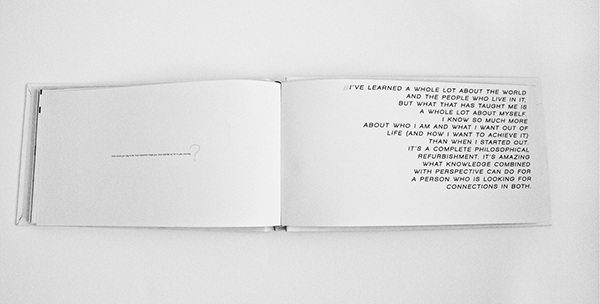 ?
I'VE LEARNED A WHOLE LOT ABOUT THE WORLD
AND THE PEOPLE WHO LIVE IN IT,
BUT WHAT THAT HAS TAUGHT ME IS
A WHOLE LOT ABOUT MYSELF.
I KNOW SO MUCH MORE
ABOUT WHO I AM AND WHAT I WANT OUT OF
LIFE (AND HOW I WANT TO ACHIEVE IT)
THAN WHEN I STARTED OUT.
IT'S A COMPLETE PHILOSOPHICAL
REFURBISHMENT. IT'S AMAZING
WHAT KNOWLEDGE COMBINED
WITH PERSPECTIVE CAN DO FOR
A PERSON WHO IS LOOKING FOR
CONNECTIONS IN BOTH.